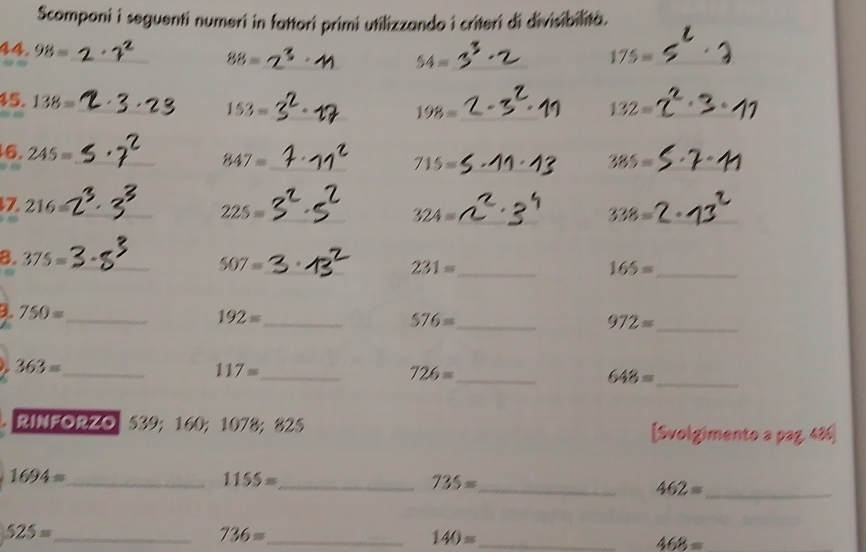 Scomponi i seguenti numeri in fattori primi utilizzando i criteri di divisibilità.
44. 98 = 2 · 7² 88 = 2³ · 11 54 = 3³ · 2 175 = 5² · 7
45. 138 = 2 · 3 · 23 153 = 3² · 17 198 = 2 · 3² · 11 132 = 2² · 3 · 11
46. 245 = 5 · 7² 847 = 7 · 11² 715 = 5 · 11 · 13 385 = 5 · 7 · 11
47. 216 = 2³ · 3³ 225 = 3² · 5² 324 = 2² · 3⁴ 338 = 2 · 13²
8. 375 = 3 · 5³ 507 = 3 · 13² 231 = 165 =
9. 750 = 192 = 576 = 972 =
363 = 117 = 726 = 648 =
RINFORZO 539; 160; 1078; 825 [Svolgimento a pag. 486]
1694 = 1155 = 735 = 462 =
525 = 736 = 140 = 468 =